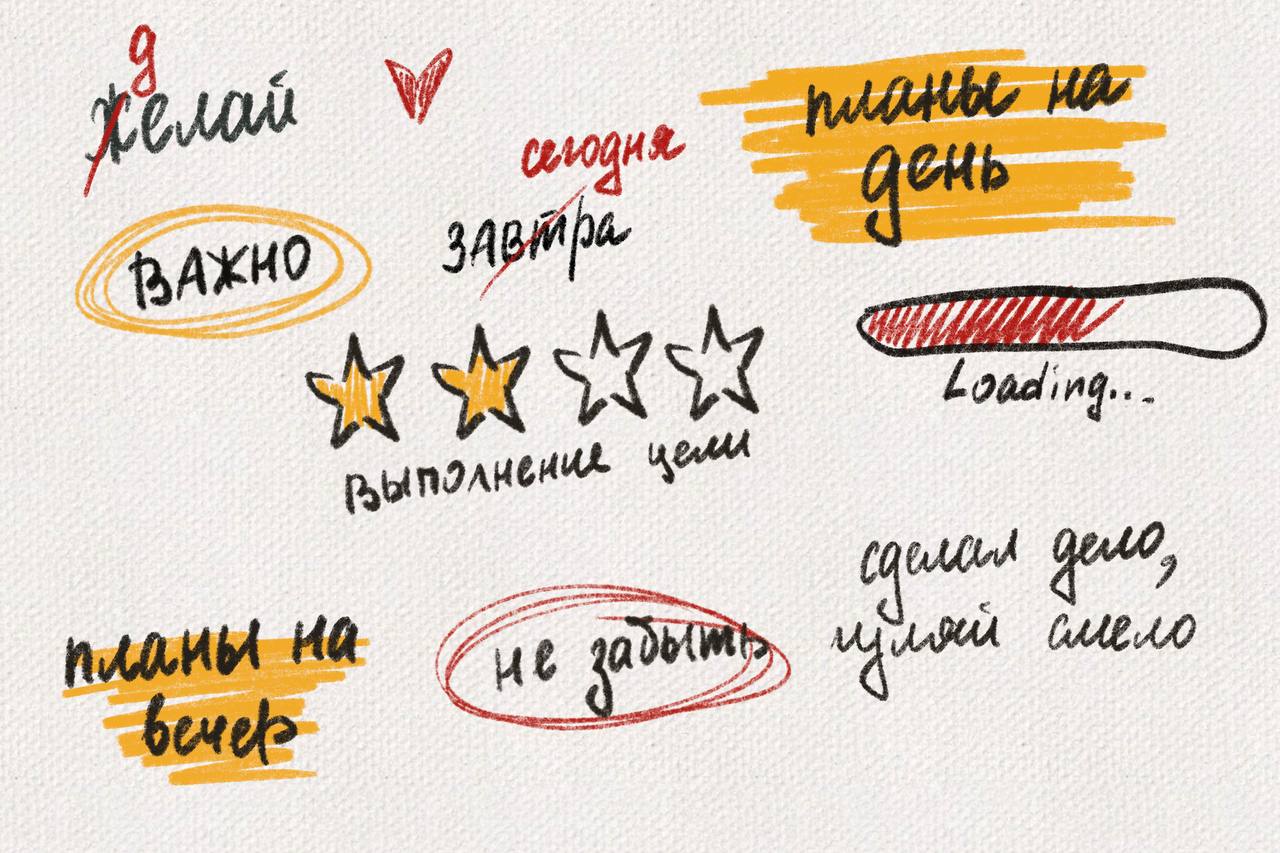 д
желай
сегодня
завтра
планы на
день
ВАЖНО
Loading...
Выполнение цели
сделал дело,
гуляй смело
планы на
вечер
не забыть